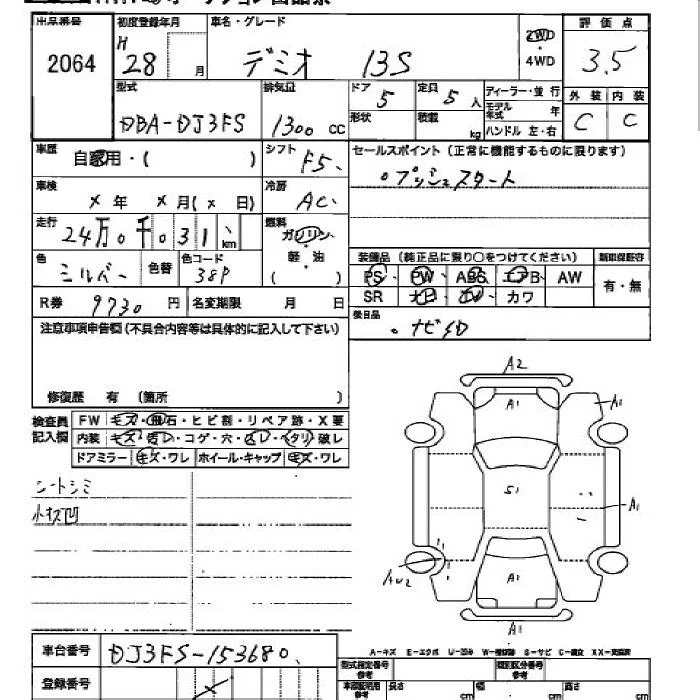 出品番号 初度登録年月 車名・グレード 評価点
2064 H28 月 デミオ 13S 2WD・4WD 3.5
型式 排気量 ドア 5 定員 5人 ディーラー・並行 外装 内装
DBA-DJ3FS 1300 cc 形状 積載 kg モデル年式 年 C C
ハンドル 左・右
車歴 自家用・( ) シフト F5、 セールスポイント(正常に機能するものに限ります)
車検 ×年 ×月(×日) 冷房 AC、 ○プッシュスタート
走行 24万0千031、km 燃料 ガソリン・軽・油 ( )
色 シルバー 色替 色コード 38P 装備品(純正品に限り○をつけてください) 新車保証書
PS・PW・ABS・エアB・AW 有・無
R券 9730 円 名変期限 月 日 SR カワ
注意事項申告欄(不具合内容等は具体的に記入して下さい) 後日品
・ナビSD
修復歴 有 (箇所 )
検査員記入欄 FW キズ・飛石・ヒビ割・リペア跡・X要
内装 キズ・コゲ・穴・破レ
ドアミラー キズ・ワレ ホイール・キャップ キズ・ワレ
シートシミ
小キズ凹
A2
A1
A1
S1
A1
AU2
A1
A1
A-キズ E-エクボ U-凹み W-補修跡 S-サビ C-腐食 XX-交換済
車台番号 DJ3FS-153680、 型式指定番号 参考 類別区分番号 参考
登録番号 車庫証明用 参考 長さ cm 幅 cm 高さ cm